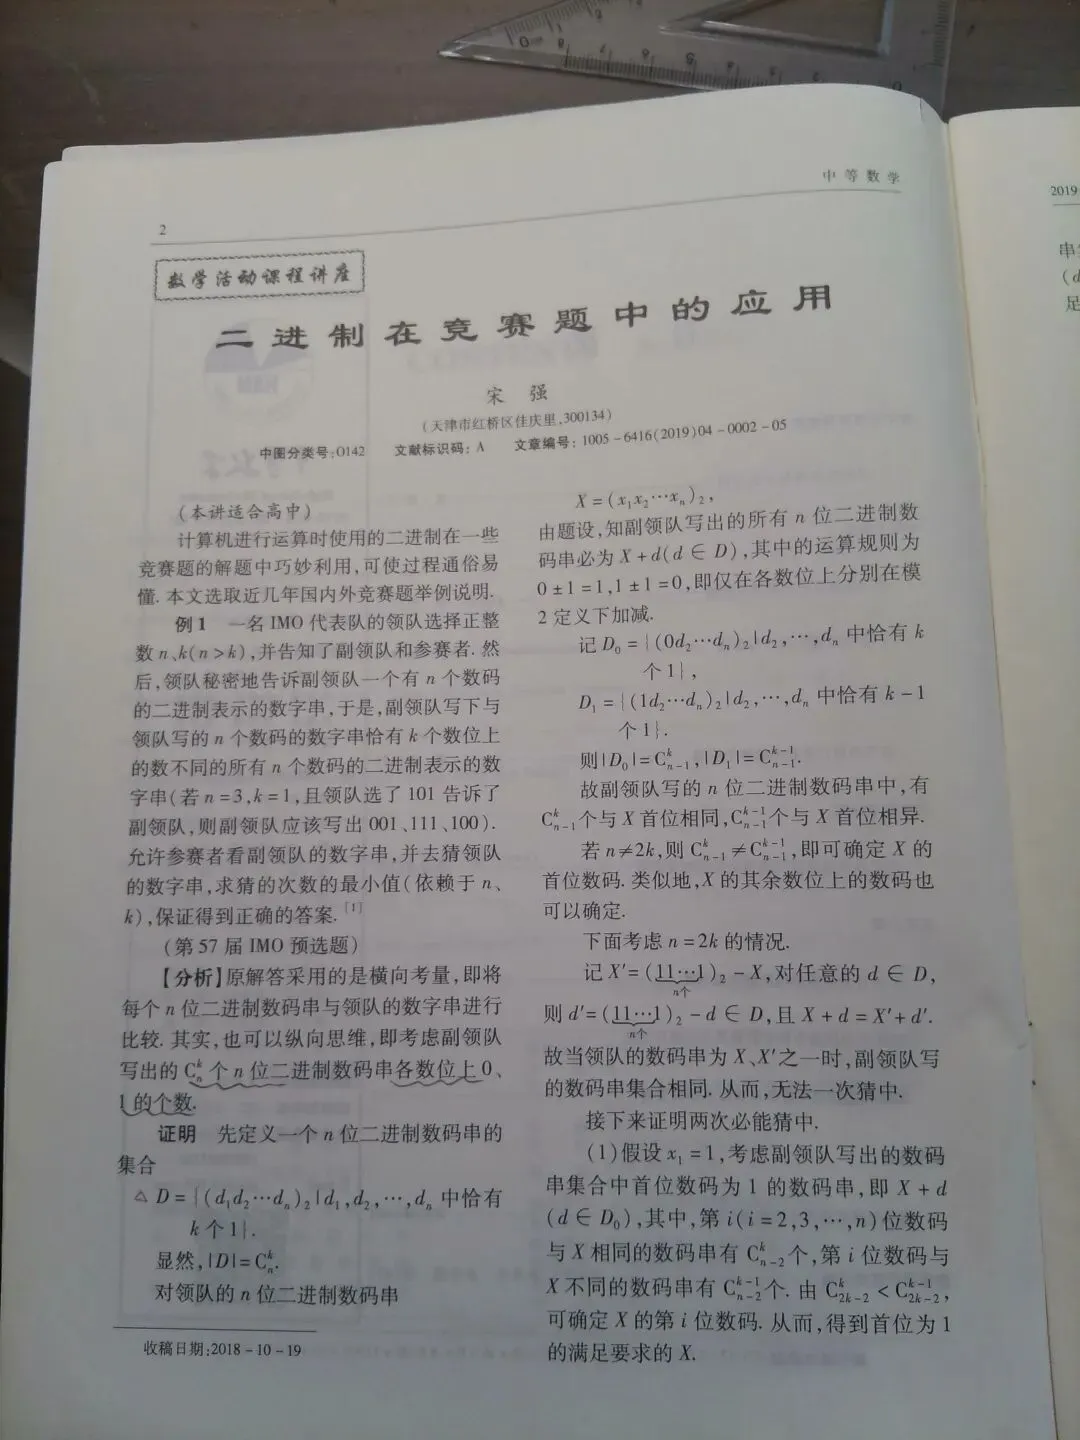 中等数学
2
数学活动课程讲座
二进制在竞赛题中的应用
宋 强
(天津市红桥区佳庆里,300134)
中图分类号:O142 文献标识码: A 文章编号: 1005-6416(2019)04-0002-05
(本讲适合高中)
计算机进行运算时使用的二进制在一些
竞赛题的解题中巧妙利用,可使过程通俗易
懂. 本文选取近几年国内外竞赛题举例说明.
例1 一名 IMO 代表队的领队选择正整
数 n、k(n>k),并告知了副领队和参赛者. 然
后,领队秘密地告诉副领队一个有 n 个数码
的二进制表示的数字串,于是,副领队写下与
领队写的 n 个数码的数字串恰有 k 个数位上
的数不同的所有 n 个数码的二进制表示的数
字串(若 n=3,k=1,且领队选了 101 告诉了
副领队,则副领队应该写出 001、111、100).
允许参赛者看副领队的数字串,并去猜领队
的数字串,求猜的次数的最小值(依赖于 n、
k),保证得到正确的答案. [1]
(第 57 届 IMO 预选题)
【分析】原解答采用的是横向考量,即将
每个 n 位二进制数码串与领队的数字串进行
比较. 其实,也可以纵向思维,即考虑副领队
写出的 C_n^k 个 n 位二进制数码串各数位上 0、
1 的个数.
证明 先定义一个 n 位二进制数码串的
集合
△ D={(d₁d₂⋯dₙ)₂|d₁,d₂,⋯,dₙ 中恰有
k 个 1}.
显然,|D|=C_n^k.
对领队的 n 位二进制数码串
收稿日期:2018-10-19
X=(x₁x₂⋯xₙ)₂,
由题设,知副领队写出的所有 n 位二进制数
码串必为 X+d(d∈D),其中的运算规则为
0±1=1,1±1=0,即仅在各数位上分别在模
2 定义下加减.
记 D₀={(0d₂⋯dₙ)₂|d₂,⋯,dₙ 中恰有 k
个 1},
D₁={(1d₂⋯dₙ)₂|d₂,⋯,dₙ 中恰有 k-1
个 1}.
则|D₀|=C_{n-1}^k,|D₁|=C_{n-1}^{k-1}.
故副领队写的 n 位二进制数码串中,有
C_{n-1}^k个与 X 首位相同,C_{n-1}^{k-1}个与 X 首位相异.
若 n≠2k,则 C_{n-1}^k≠C_{n-1}^{k-1},即可确定 X 的
首位数码. 类似地,X 的其余数位上的数码也
可以确定.
下面考虑 n=2k 的情况.
记 X′=(11⋯1)₂-X,对任意的 d∈D,
n个
则 d′=(11⋯1)₂-d∈D,且 X+d=X′+d′.
n个
故当领队的数码串为 X、X′之一时,副领队写
的数码串集合相同. 从而,无法一次猜中.
接下来证明两次必能猜中.
(1)假设 x₁=1,考虑副领队写出的数码
串集合中首位数码为 1 的数码串,即 X+d
(d∈D₀),其中,第 i(i=2,3,⋯,n)位数码
与 X 相同的数码串有 C_{n-2}^k个,第 i 位数码与
X 不同的数码串有 C_{n-2}^{k-1}个. 由 C_{2k-2}^k<C_{2k-2}^{k-1},
可确定 X 的第 i 位数码. 从而,得到首位为 1
的满足要求的 X.
2019
串
(d
足